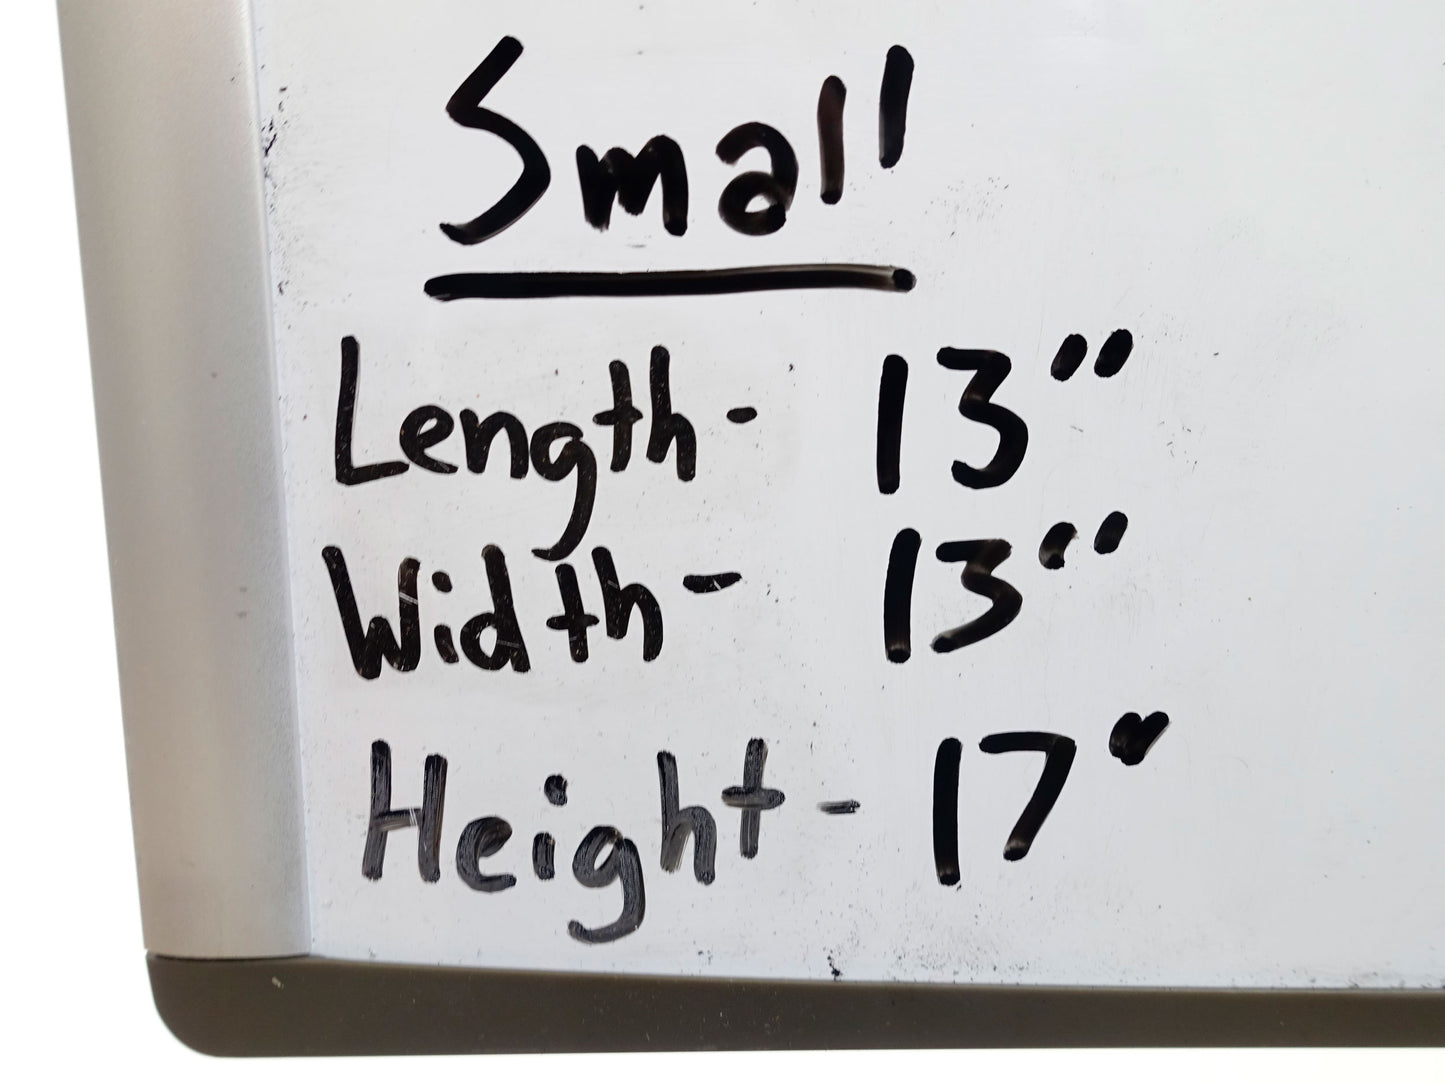 Small
Length- 13"
Width- 13"
Height- 17"